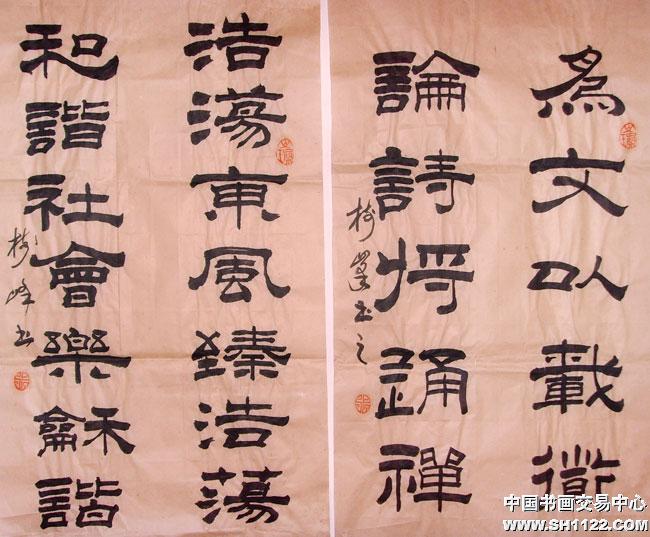 爲文以載衜
論詩將通禪
樹峯书之
浩蕩東風臻浩蕩
和諧社會樂龢諧
樹峰书
中国书画交易中心
www.SH1122.com